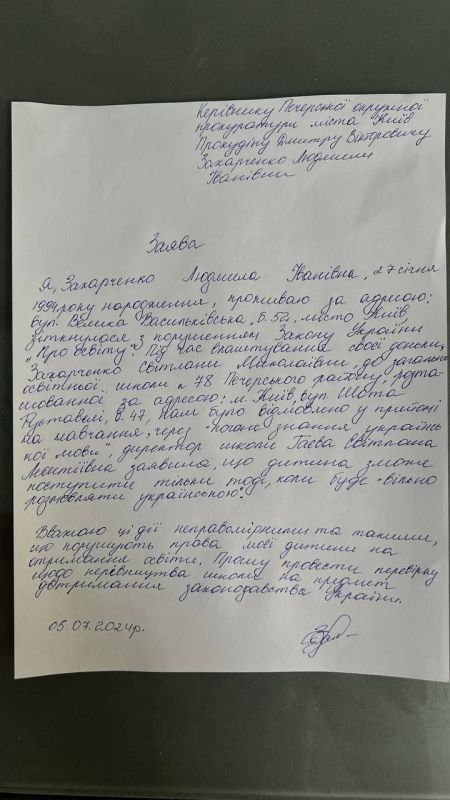 Керівнику Печерської окружної
прокуратури міста Київ
Прокудіну Дмитру Вікторовичу
Захарченко Людмили
Іванівни
Заява
Я, Захарченко Людмила Іванівна, 27 січня
1994 року народження, проживаю за адресою:
вул. Велика Васильківська, б. 52, місто Київ
зіткнулася з порушенням Закону України
„Про освіту". Під час влаштування своєї доньки,
Захарченко Світлани Миколаївни, до загально
освітньої школи № 78 Печерського району, розта-
шованної за адресою: м. Київ, вул. Шота
Руставелі, б. 47, нам було відмовлено у прийомі
на навчання, через "погане знання українсь
кої мови", директор школи Гаєва Світлана
Леонтіївна заявила, що дитина зможе
поступити тільки тоді, коли буде "вільно
розмовляти українською".
Вважаю ці дії неправомірними та такими,
що порушують права моєї дитини на
отримання освіти. Прошу провести перевірку
щодо керівництва школи на предмет
дотримання законодавства України.
05.07.2024р.